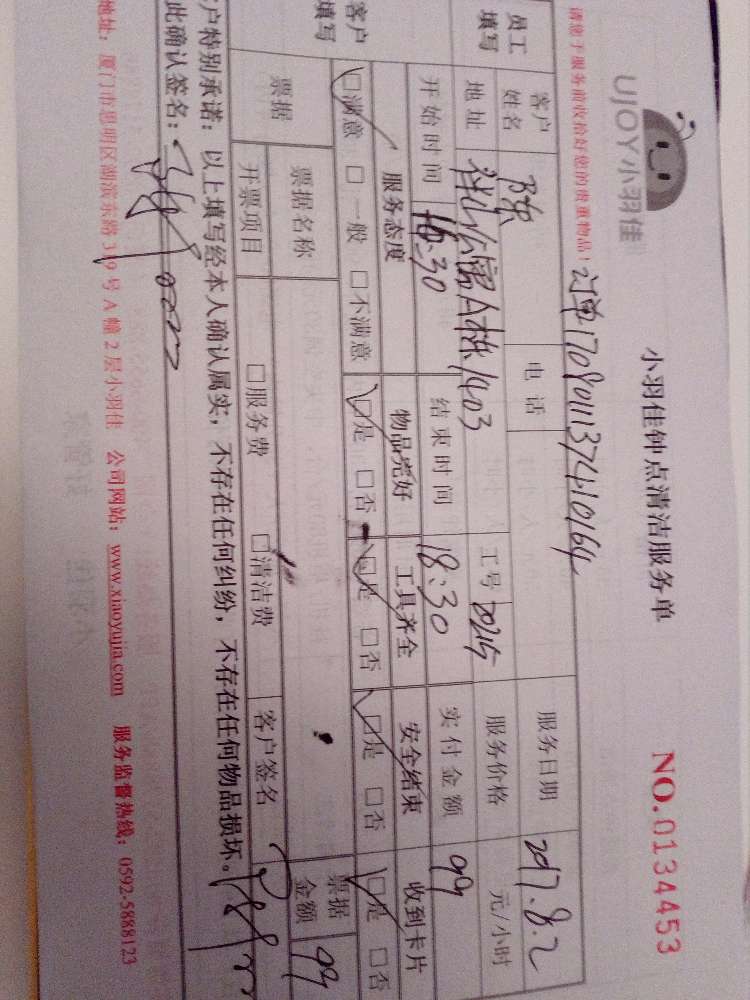 UJOY小羽佳
小羽佳钟点清洁服务单
NO.0134453
请您于服务前收拾好您的贵重物品!
订单1708011137410164
员工填写
客户姓名 陈 电话 服务日期 2017.8.2
地址 祥山公寓A栋1403 工号 20215 服务价格 元/小时
开始时间 16:30 结束时间 18:30 实付金额 99
客户填写
服务态度 物品完好 工具齐全 安全结束 收到卡片
☑满意 □一般 □不满意 ☑是 □否 ☑是 □否 ☑是 □否 ☑是 □否
票据 票据名称 票据金额 99
开票项目 □服务费 □清洁费 客户签名
户特别承诺:以上填写经本人确认属实,不存在任何纠纷,不存在任何物品损坏。
此确认签名:
地址:厦门市思明区湖滨东路319号A幢2层小羽佳 公司网站:www.xiaoyujia.com 服务监督热线:0592-5888123